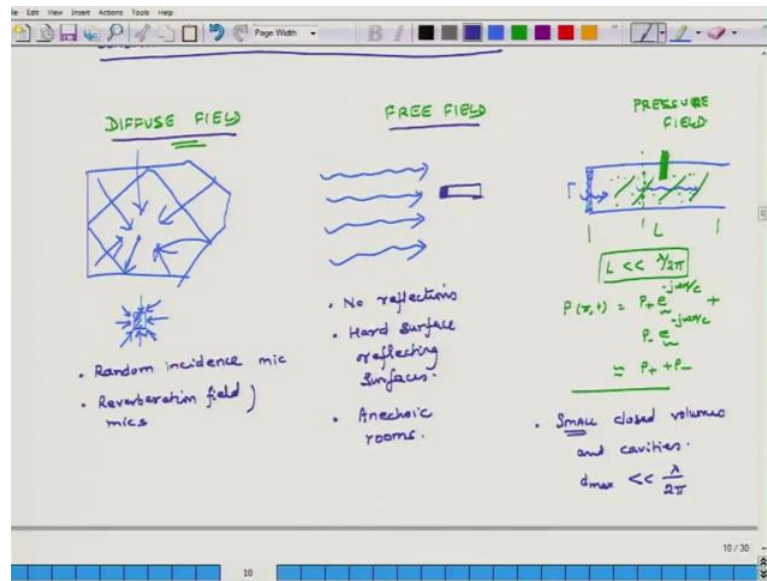 File Edit View Insert Actions Tools Help
Page Width
B I
DIFFUSE FIELD
• Random incidence mic
• Reverberation field)
mics
FREE FIELD
• No reflections
• Hard surface
reflecting
surfaces.
• Anechoic
rooms.
PRESSURE
FIELD
L
L << λ/2π
P(x,t) = P+ e^-jωx/c +
P- e^-jωx/c
≃ P+ + P-
• SMALL closed volumes
and cavities.
dmax << λ/2π
10 / 30
10